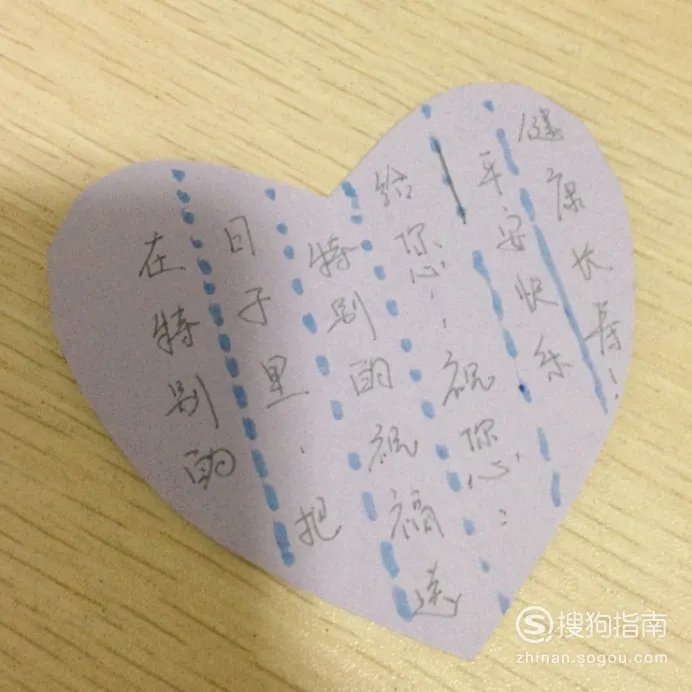 在特别的
日子里，把
特别的祝福送
给您，祝您：
平安快乐
健康长寿！
搜狗指南
zhinan.sogou.com